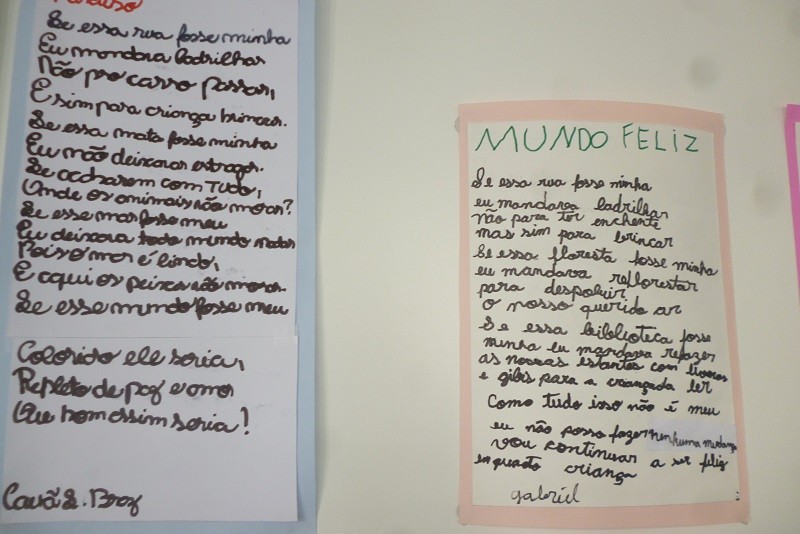 Paraíso
Se essa rua fosse minha
Eu mandava ladrilhar
Não pro carro passar,
E sim para criança brincar.
Se essa mata fosse minha
Eu não deixava estragar.
Se acabarem com tudo,
Onde os animais vão morar?
Se esse mar fosse meu
Eu deixava todo mundo nadar
Pois o mar é lindo,
E aqui os peixes vão morar.
Se esse mundo fosse meu
Colorido ele seria,
Repleto de paz e amor
Que bom assim seria!
Cauã S. Braz
MUNDO FELIZ
Se essa rua fosse minha
eu mandava ladrilhar
não para ter enchente
mas sim para brincar
Se essa floresta fosse minha
eu mandava reflorestar
para despoluir
o nosso querido ar
Se essa biblioteca fosse
minha eu mandava refazer
as nossas estantes com livros
e gibis para a criançada ler
como tudo isso não é meu
eu não posso fazer nenhuma mudança
vou continuar a ser feliz
enquanto criança
gabriel